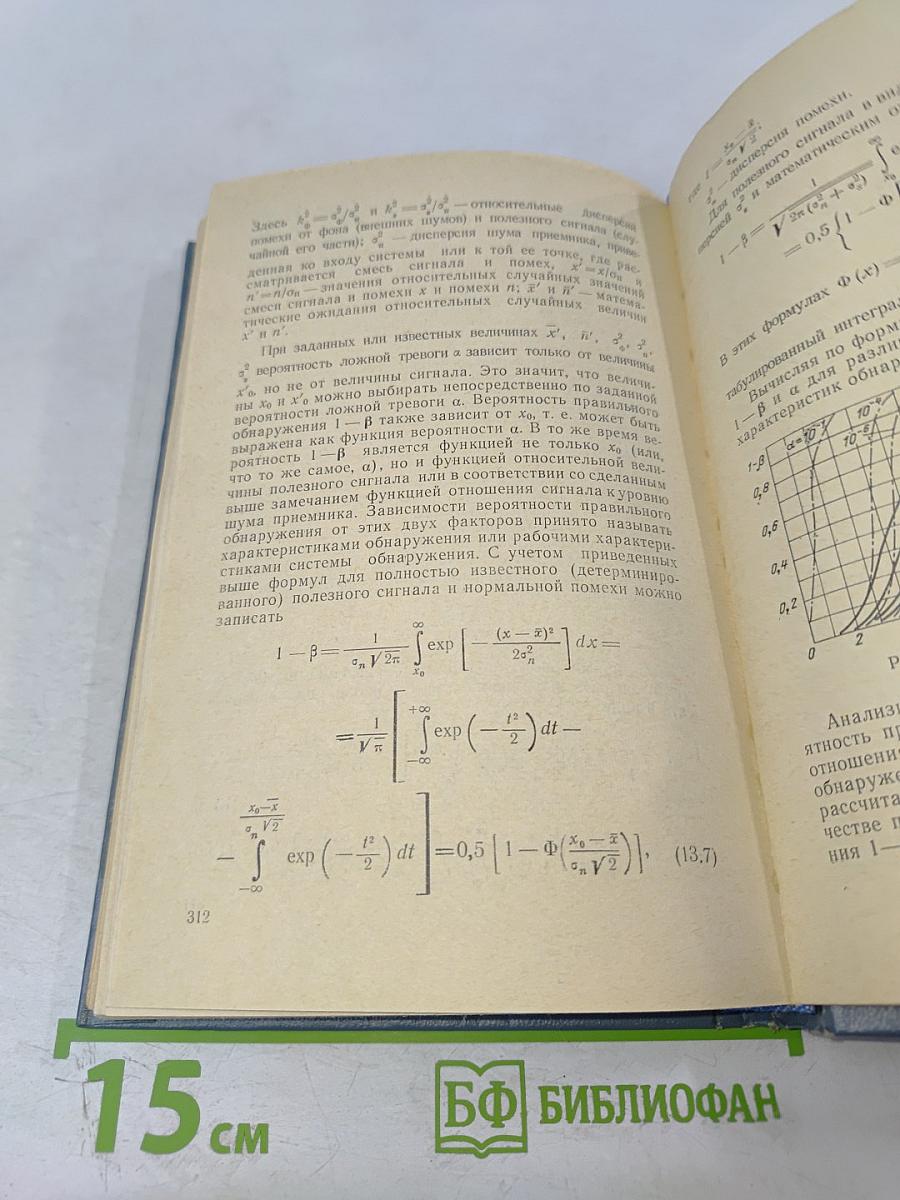 Здесь h²ф = σ²ф/σ²п и h²s = σ²s/σ²п — относительные дисперсии
помехи от фона (внешних шумов) и полезного сигнала (слу-
чайной его части); σ²п — дисперсия шума приемника, приве-
денная ко входу системы или к той ее точке, где рас-
сматривается смесь сигнала и помех, x′=x/σп и
n′=n/σп — значения относительных случайных значений
смеси сигнала и помехи x и помехи n; x̄′ и n̄′ — матема-
тические ожидания относительных случайных величин
x′ и n′.
При заданных или известных величинах x̄′, n̄′,
вероятность ложной тревоги α зависит только от величины
x′₀, но не от величины сигнала. Это значит, что величи-
ны x₀ и x′₀ можно выбирать непосредственно по заданной
вероятности ложной тревоги α. Вероятность правильного
обнаружения 1—β также зависит от x₀, т. е. может быть
выражена как функция вероятности α. В то же время ве-
роятность 1—β является функцией не только x₀ (или,
что то же самое, α), но и функцией относительной вели-
чины полезного сигнала или в соответствии со сделанным
выше замечанием функцией отношения сигнала к уровню
шума приемника. Зависимости вероятности правильного
обнаружения от этих двух факторов принято называть
характеристиками обнаружения или рабочими характери-
стиками системы обнаружения. С учетом приведенных
выше формул для полностью известного (детерминиро-
ванного) полезного сигнала и нормальной помехи можно
записать
1—β = 1/(σₙ√2π) ∫x₀^∞ exp [—(x — x̄)²/2σ²ₙ] dx =
= 1/√π [ ∫—∞^+∞ exp (—t²/2) dt —
— ∫—∞^(x₀—x̄)/(σₙ√2) exp (—t²/2) dt ] = 0,5 [1 — Φ((x₀ — x̄)/(σₙ√2))], (13.7)
312
где l = (x₀ — x̄)/(σₙ√2);
— дисперсия помехи.
Для полезного сигнала в
персией σ²s и математическим
1—β = 1/√2π(σ²ₙ + σ²s) ∫x₀^∞
= 0,5 {1 — Φ
В этих формулах Φ(x) =
табулированный интеграл
Вычисляя по
1—β и α для
характеристик
1-β
0,8
0,6
0,4
0,2
0
2
α=10⁻¹
10⁻⁴
10⁻⁶
Р
Анализ
ятность
отношения
обнаруже
рассчита
честве п
ния 1—
15 см
БФ БИБЛИОФАН